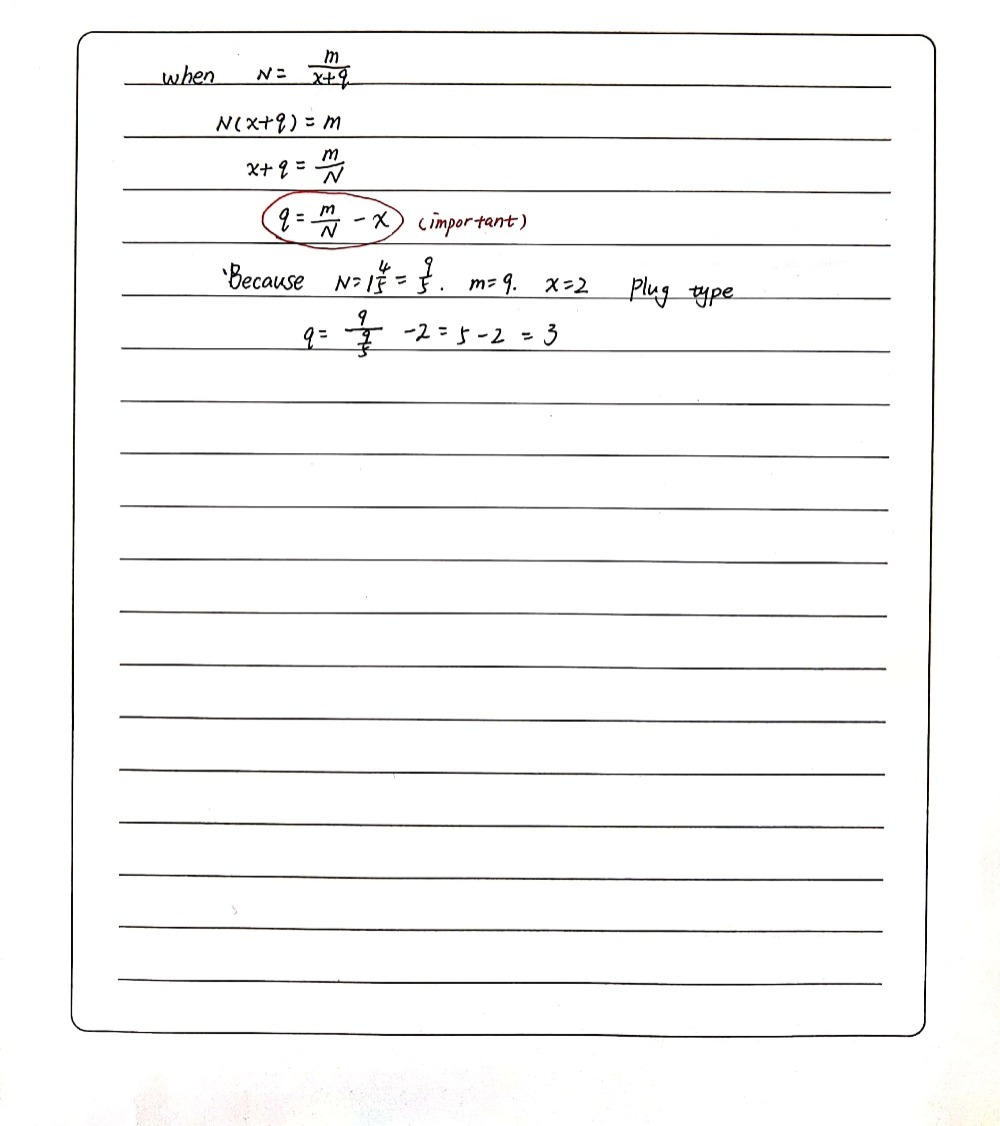 when N = m/(x+q)
N(x+q) = m
x+q = m/N
q = m/N - x (important)
Because N = 1 4/5 = 9/5. m = 9. x = 2 Plug type
q = 9/(9/5) - 2 = 5 - 2 = 3